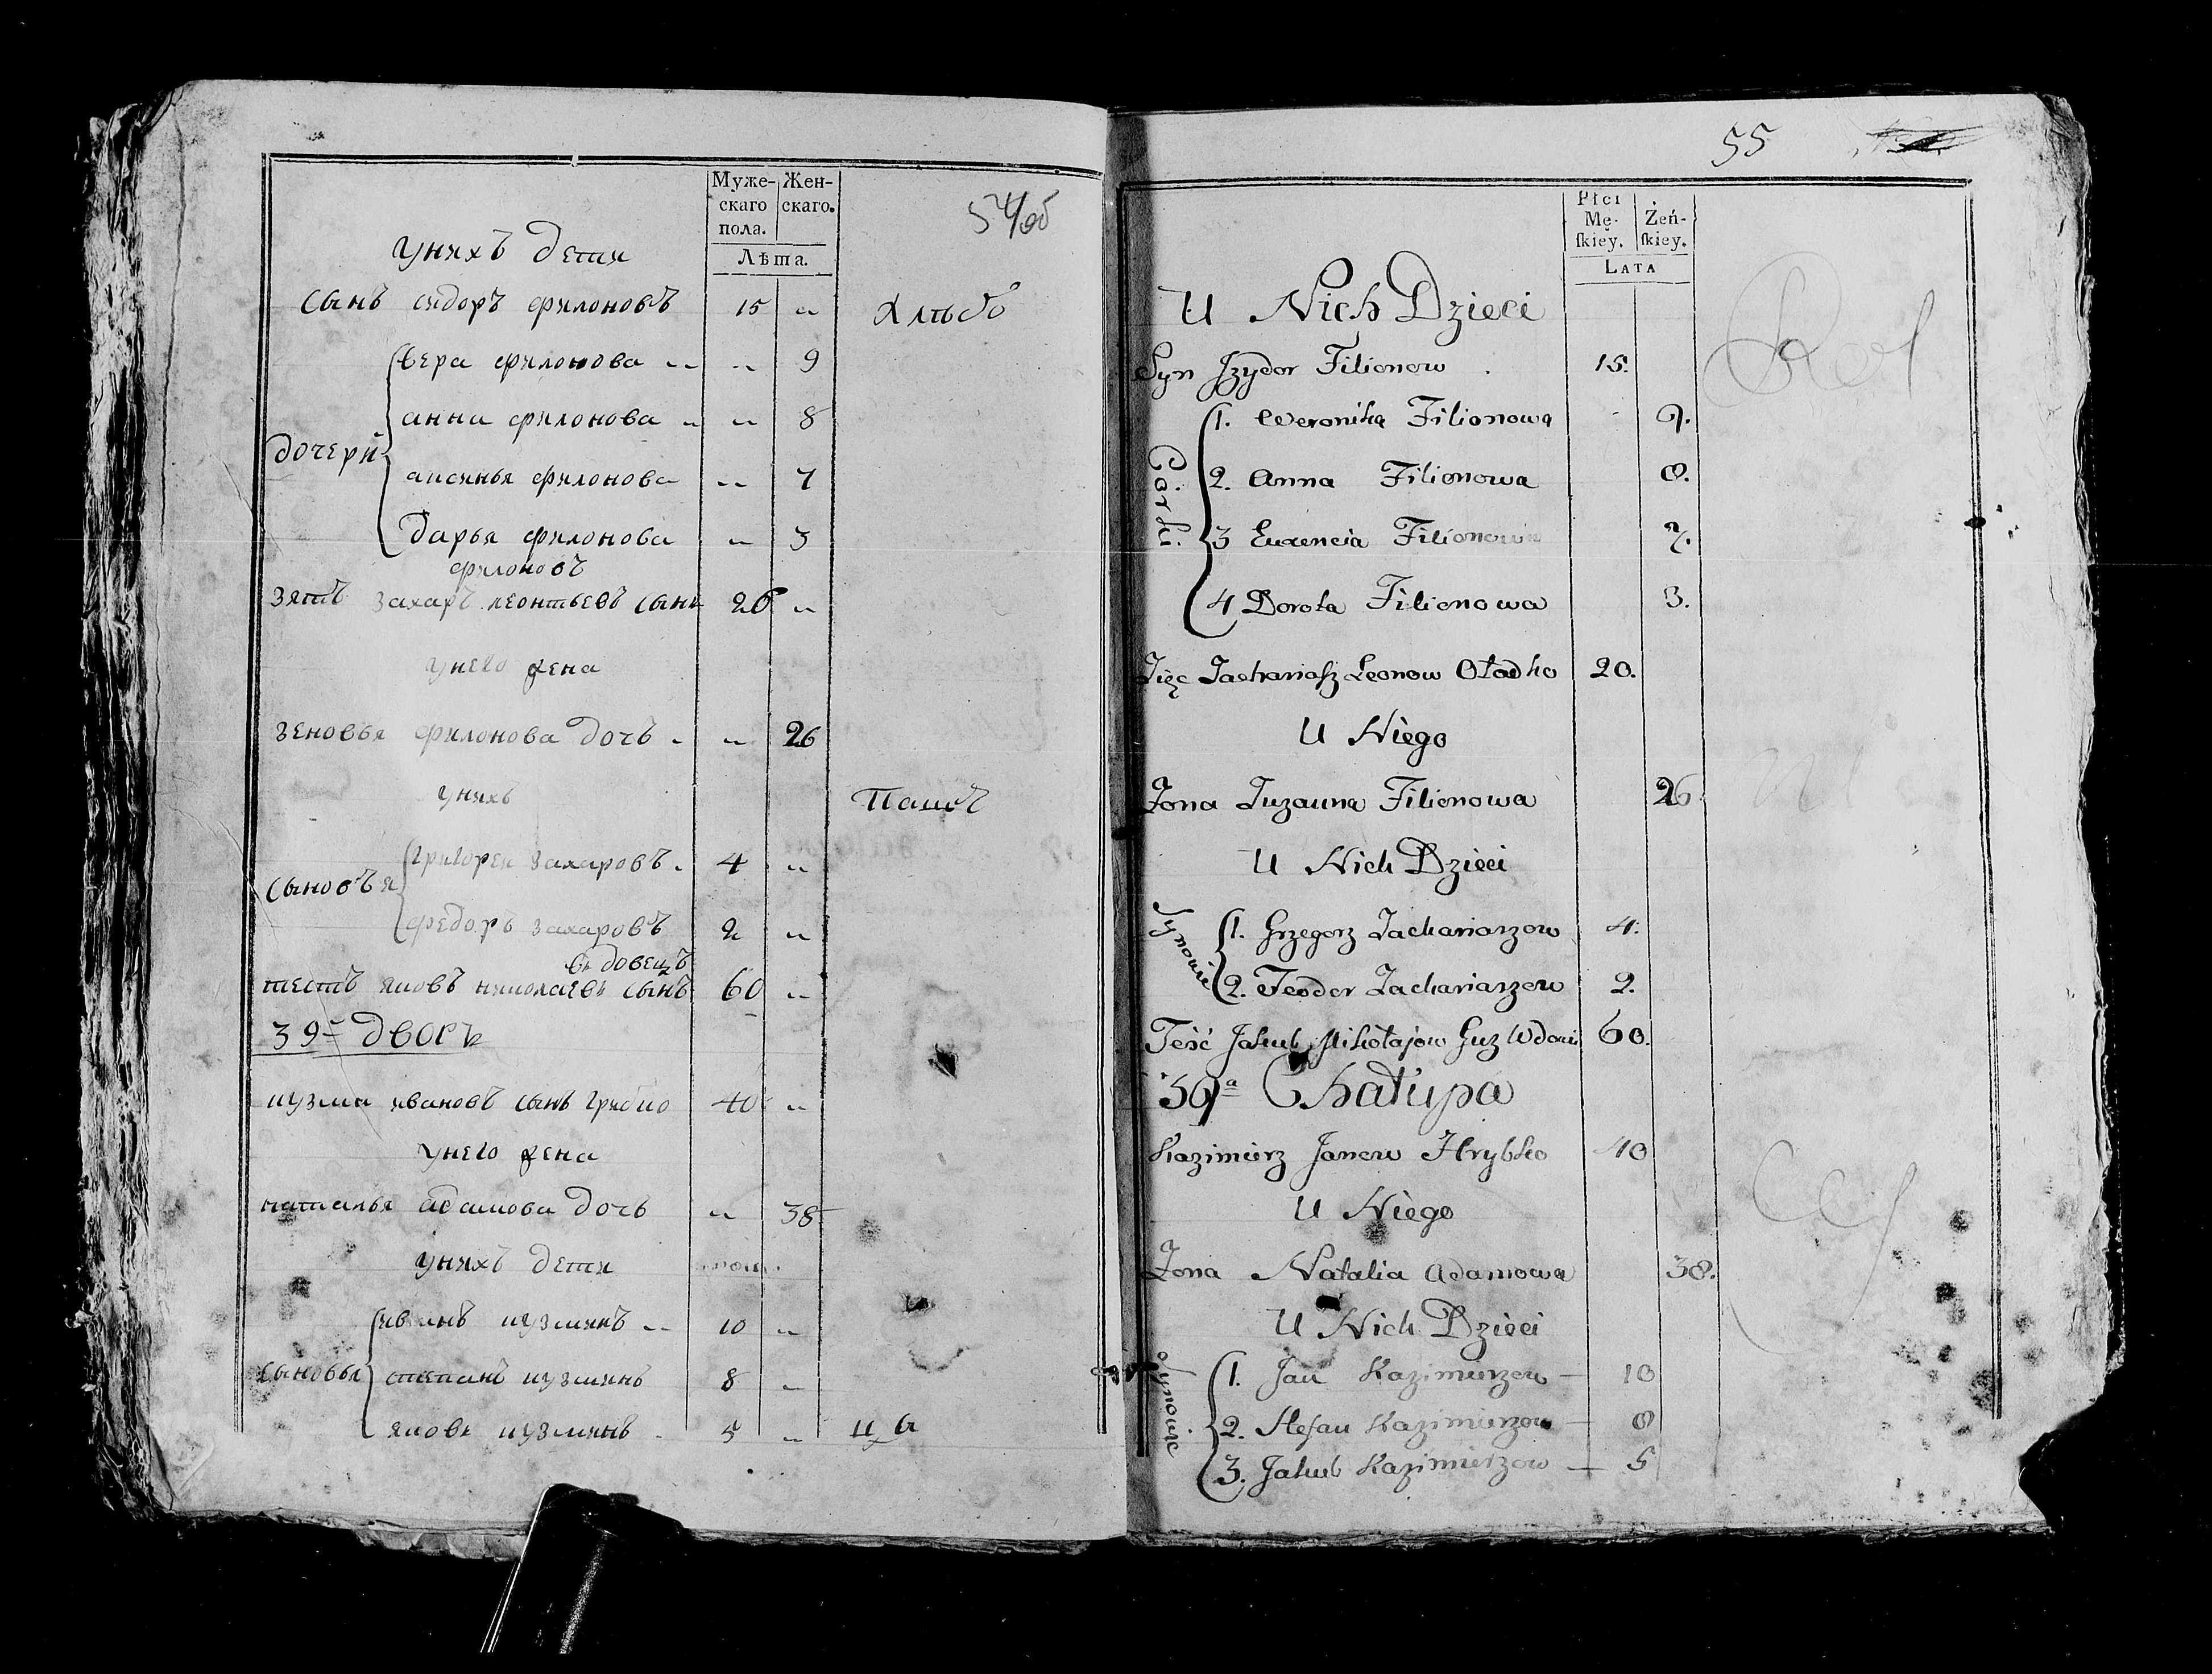 Муже-
скаго
пола.
Жен-
скаго.
Лѣта.
54/об
у нихъ дети
сынъ сидоръ филоновъ 15 „
дочери
вера филонова „ 9
анна филонова „ 8
аксинья филонова „ 7
дарья филонова „ 3
филоновъ
зять захаръ леонтьевъ сынъ 26 „
у него жена
зеновья филонова дочь „ 26
у нихъ
сыновья
григорей захаровъ 4 „
федоръ захаровъ 2 „
вдовецъ
тесть яковъ николаевъ сынъ 60 „
39й дворъ
кузма ивановъ сынъ грибко 40 „
у него жена
наталья адамова дочь „ 38
у нихъ дети
сыновья
иванъ кузминъ 10 „
степанъ кузминъ 8 „
яковъ кузминъ 5 „
55
Płci
Mę-
skiey.
Żeń-
skiey.
LATA
U Nich Dzieci
Syn Jzydor Filionow 15.
Corki.
1. Weronika Filionowa 9.
2. Anna Filionowa 8.
3 Euxencia Filionowa 7.
4 Dorota Filionowa 3.
Zięć Zachariasz Leonow Oładko 20.
U Niego
Zona Zuzanna Filionowa 26
U Nich Dzieci
Synowie
1. Grzegorz Zachariaszow 4.
2. Teodor Zachariaszow 2.
Teść Jakub Mikołajow Guz Wdowi 60.
39a Chałupa
Kazimierz Janow Hrybko 40
U Niego
Zona Natalia Adamowa 38.
U Nich Dzieci
Synowie
1. Jan Kazimierzow — 10
2. Stefan Kazimierzow — 8
3. Jakub Kazimierzow — 5